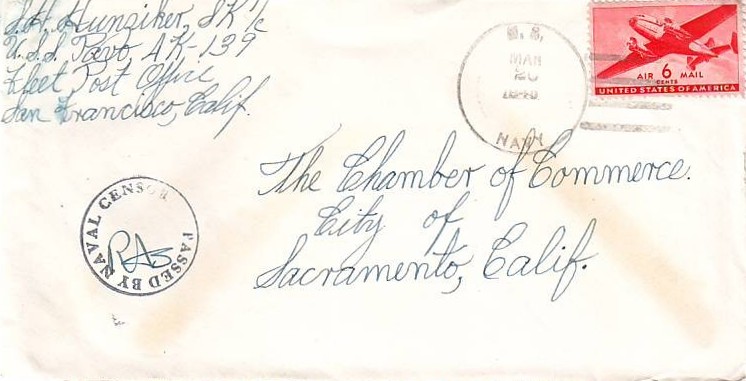 S.H. Hunziker, SK 1/c
U.S.S. Pavo AK-139
Fleet Post Office
San Francisco, Calif.
U.S.
MAR
20
NAVY
AIR 6 MAIL
CENTS
UNITED STATES OF AMERICA
The Chamber of Commerce.
City of
Sacramento, Calif.
PASSED BY NAVAL CENSOR